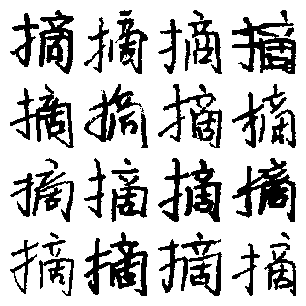 摘摘摘摘
摘摘摘摘
摘摘摘摘
摘摘摘摘